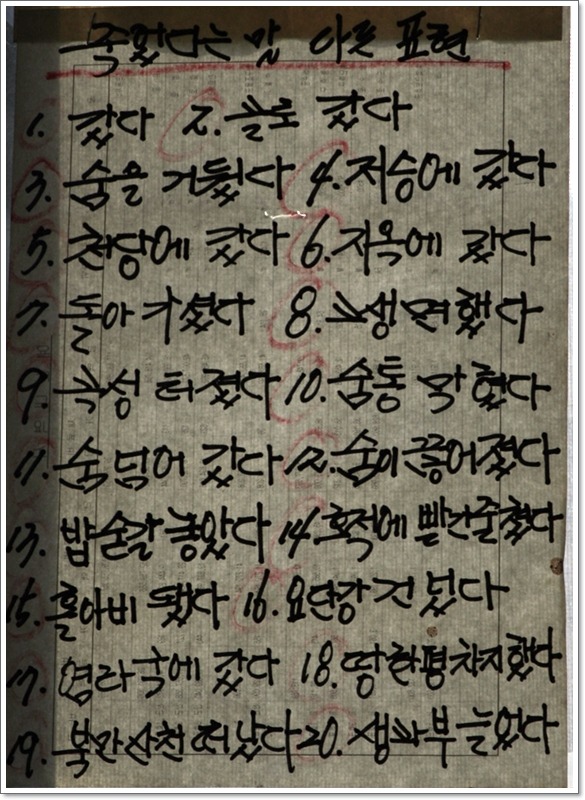 죽었다는 말 표현
1. 갔다 2. 골로 갔다
3. 숨을 거뒀다 4. 저승에 갔다
5. 천당에 갔다 6. 지옥에 갔다
7. 돌아 가셨다 8. 고생 면했다
9. 곡성 터졌다 10. 숨통 막혔다
11. 숨 넘어 갔다 12. 숨이 끊어졌다
13. 밥술갈 놓았다 14. 호적에 빨간줄 쳤다
15. 홀아비 됐다 16. 요단강 건넜다
17. 염라국에 갔다 18. 땅한평 차지했다
19. 북망산천 떠났다 20. 생과부 늘었다